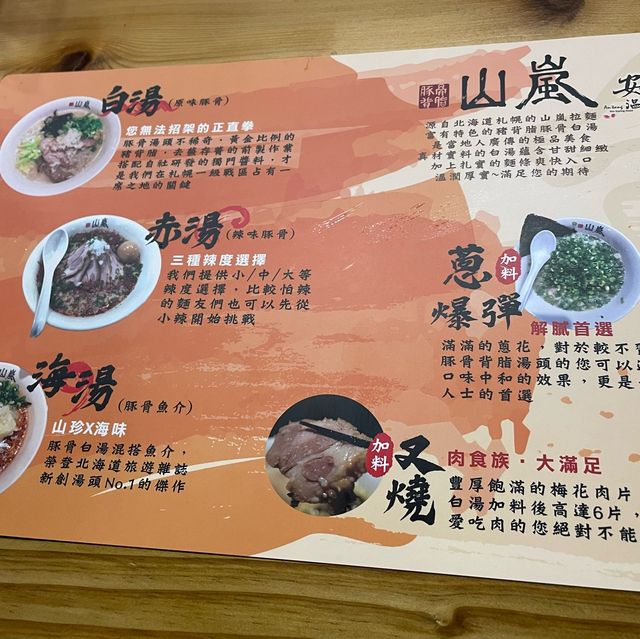 白湯(原味豚骨)
您無法招架的正直拳
豚骨湯頭不稀奇,黃金比例的
豬背脂,去蕪存菁的前製作業
搭配自社研發的獨門醬料,才
是我們在札幌一級戰區占有一
席之地的關鍵
赤湯(辣味豚骨)
三種辣度選擇
我們提供小/中/大等
辣度選擇,比較怕辣
的麵友們也可以先從
小辣開始挑戰
海湯(豚骨魚介)
山珍X海味
豚骨白湯混搭魚介,
榮登北海道旅遊雜誌
新創湯頭No.1的傑作
豚骨
背脂
山嵐
安
溫
源自北海道札幌的山嵐拉麵
富有特色的豬背脂豚骨白湯
是當地人廣傳的極品美食
真材實料的白湯蘊含甘甜細緻
加上扎實的麵條爽快入口
溫潤厚實~滿足您的期待
蔥
加料
爆彈
解膩首選
滿滿的蔥花,對於較不
豚骨背脂湯頭的您可以
口味中和的效果,更是
人士的首選
加料
叉燒
肉食族·大滿足
豐厚飽滿的梅花肉片
白湯加料後高達6片,
愛吃肉的您絕對不能
山嵐
山嵐
山嵐
山嵐